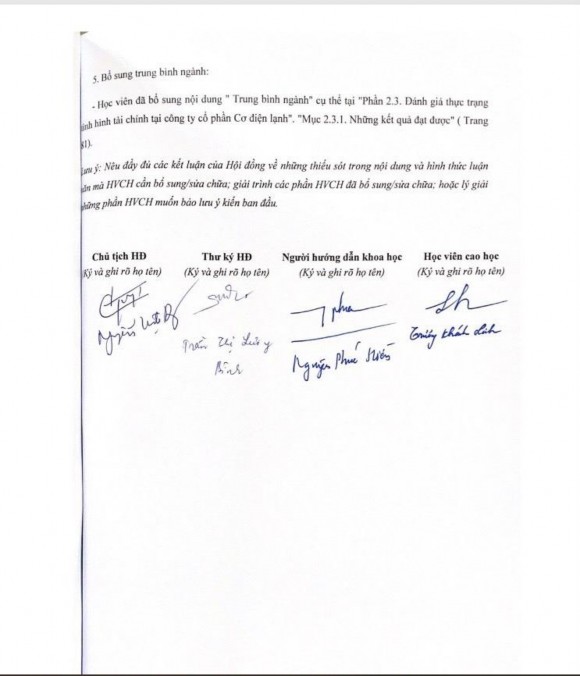 5. Bổ sung trung bình ngành:
- Học viên đã bổ sung nội dung " Trung bình ngành" cụ thể tại "Phần 2.3. Đánh giá thực trạng
ình hình tài chính tại công ty cổ phần Cơ điện lạnh". "Mục 2.3.1. Những kết quả đạt được" ( Trang
81).
Lưu ý: Nêu đầy đủ các kết luận của Hội đồng về những thiếu sót trong nội dung và hình thức luận
ăn mà HVCH cần bổ sung/sửa chữa; giải trình các phần HVCH đã bổ sung/sửa chữa; hoặc lý giải
những phần HVCH muốn bảo lưu ý kiến ban đầu.
Chủ tịch HĐ Thư ký HĐ Người hướng dẫn khoa học Học viên cao học
(Ký và ghi rõ họ tên) (Ký và ghi rõ họ tên) (Ký và ghi rõ họ tên) (Ký và ghi rõ họ tên)
Trần Thị
Bình
Nguyễn Phúc Hiền
Khánh Linh